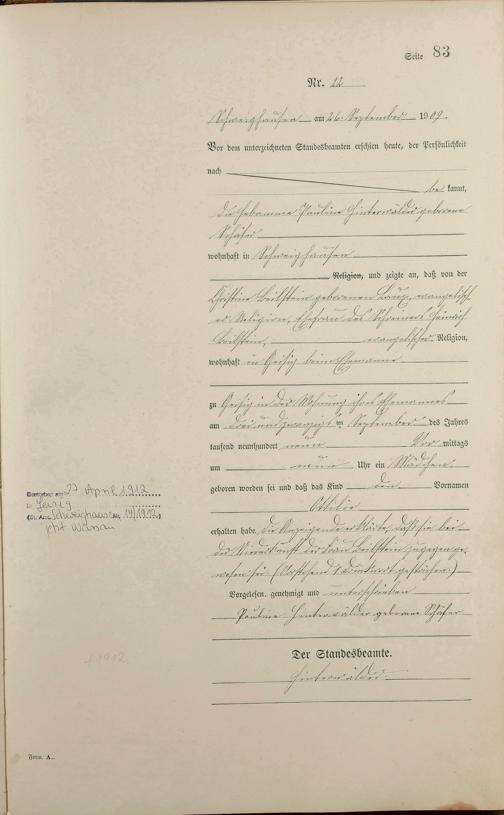 Seite 83
Nr. 22
Schweighausen am 26. September 1909.
Vor dem unterzeichneten Standesbeamten erschien heute, der Persönlichkeit
nach
be kannt,
die Hebamme Pauline Hinterwälder geborene
Schäfer
wohnhaft in Schweighausen
Religion, und zeigte an, daß von der
Christine Beilstein geborenen evangelisch
er Religion, Ehefrau des Schreiners Heinrich
Beilstein, evangelischer Religion,
wohnhaft in Geisig beim Ehemanne
zu Geisig in der Wohnung ihres Ehemannes
am drei und zwanzigsten September des Jahres
tausend neunhundert neun Vor mittags
um neun Uhr ein Mädchen
geboren worden sei und daß das Kind den Vornamen
Ottilie
erhalten habe. Die Anzeigende erklärte, daß sie bei
der Niederkunft der Frau Beilstein zugegen ge-
wesen sei (Vorstehend 1 Druckwort gestrichen.)
Vorgelesen, genehmigt und unterschrieben
Pauline Hinterwälder geborene Schäfer
Der Standesbeamte.
Hinterwälder
Gestorben am 27 April 1912
in Geisig
Schweighausen 14/1912)
jetzt
1.1912
Form. A.